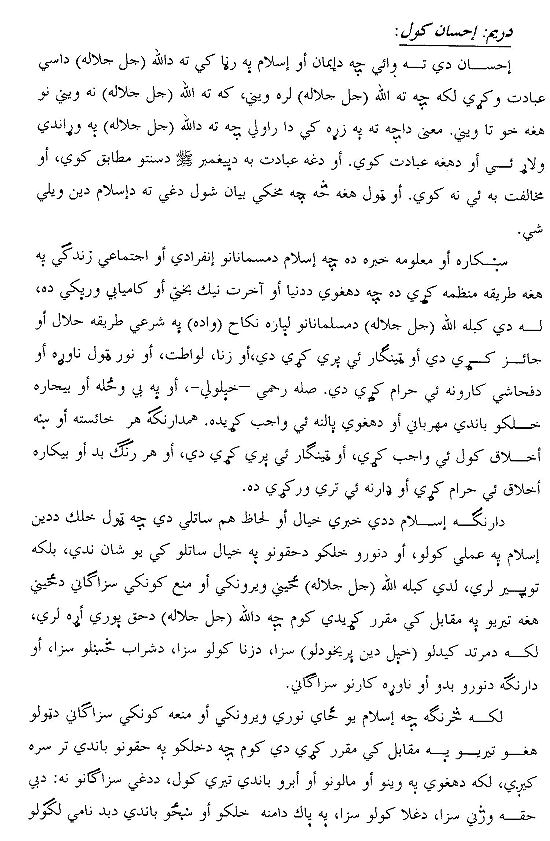 دريم: إحسان کول:
إحســان دي تــه وائي چه دإيمان أو إسلام په رڼا کي ته دالله (جل جلاله) داسي
عبادت وکړي لکه چه ته الله (جل جلاله) لره ويني، که ته الله (جل جلاله) نه ويني نو
هغه خو تا ويني. معنى داچه ته په زړه کي دا راولي چه ته دالله (جل جلاله) په وړاندي
ولاړ ئــي أو دهغه عبادت کوي. أو دغه عبادت به دپيغمبر ﷺ دسنتو مطابق کوي، أو
مخالفت به ئي نه کوي. أو ټول هغه څه چه مخکي بيان شول دغي ته دإسلام دين ويلي
شي.
ښــکاره أو معلومه خبره ده چه إسلام دمسمانانو إنفرادي أو اجتماعي زندگي په
هغه طريقه منظمه کړي ده چه دهغوي ددنيا أو آخرت نيك بختي أو کاميابي ورپکي ده،
لــه دي کبله الله (جل جلاله) دمسلمانانو لپاره نکاح (واده) په شرعي طريقه حلال أو
جائــز کــړي دي أو ټينگار ئي پري کړي دي،أو زنا، لواطت، أو نور ټول ناوړه أو
دفحاشي کارونه ئي حرام کړي دي. صله رحمي –خپلولي-، أو په بي وځله أو بيچاره
خــلکو باندي مهرباني أو دهغوي پالنه ئي واجب کړيده. همدارنگه هر خائسته أو ښه
أخــلاق کول ئي واجب کړي، أو ټينگار ئي پري کړي دي، أو هر رنگ بد أو بيکاره
أخلاق ئي حرام کړي أو ډارنه ئي تري ورکړي ده.
دارنگــه إســلام ددي خبري خيال أو لحاظ هم ساتلي دي چه ټول خلك ددين
إسلام په عملي کولو، أو دنورو خلکو دحقونو په خيال ساتلو کي يو شان ندي، بلکه
توپــير لري، لدي کبله الله (جل جلاله) ځيني ويرونکي أو منع کونکي سزاگاني دځيني
هغه تيريو په مقابل کي مقرر کړيدي کوم چه دالله (جل جلاله) دحق پوري أړه لري،
لکــه دمرتد کيدلو (خپل دين پريخودلو) سزا، دزنا کولو سزا، دشراب څښلو سزا، أو
دارنگه دنورو بدو أو ناوړه کارنو سزاگاني.
لکــه څرنگه چه إسلام يو ځاي نوري ويرونکي أو منعه کونکي سزاگاني دټولو
هغــو تيريــو پــه مقابل کي مقرر کړي دي کوم چه دخلکو په حقونو باندي تر سره
کيږي، لکه دهغوي په وينو أو مالونو أو أبرو باندي تيري کول، ددغي سزاگانو نه: دبي
حقــه وژني سزا، دغلا کولو سزا، په پاك دامنه خلکو أو ښځو باندي دبد نامي لگولو